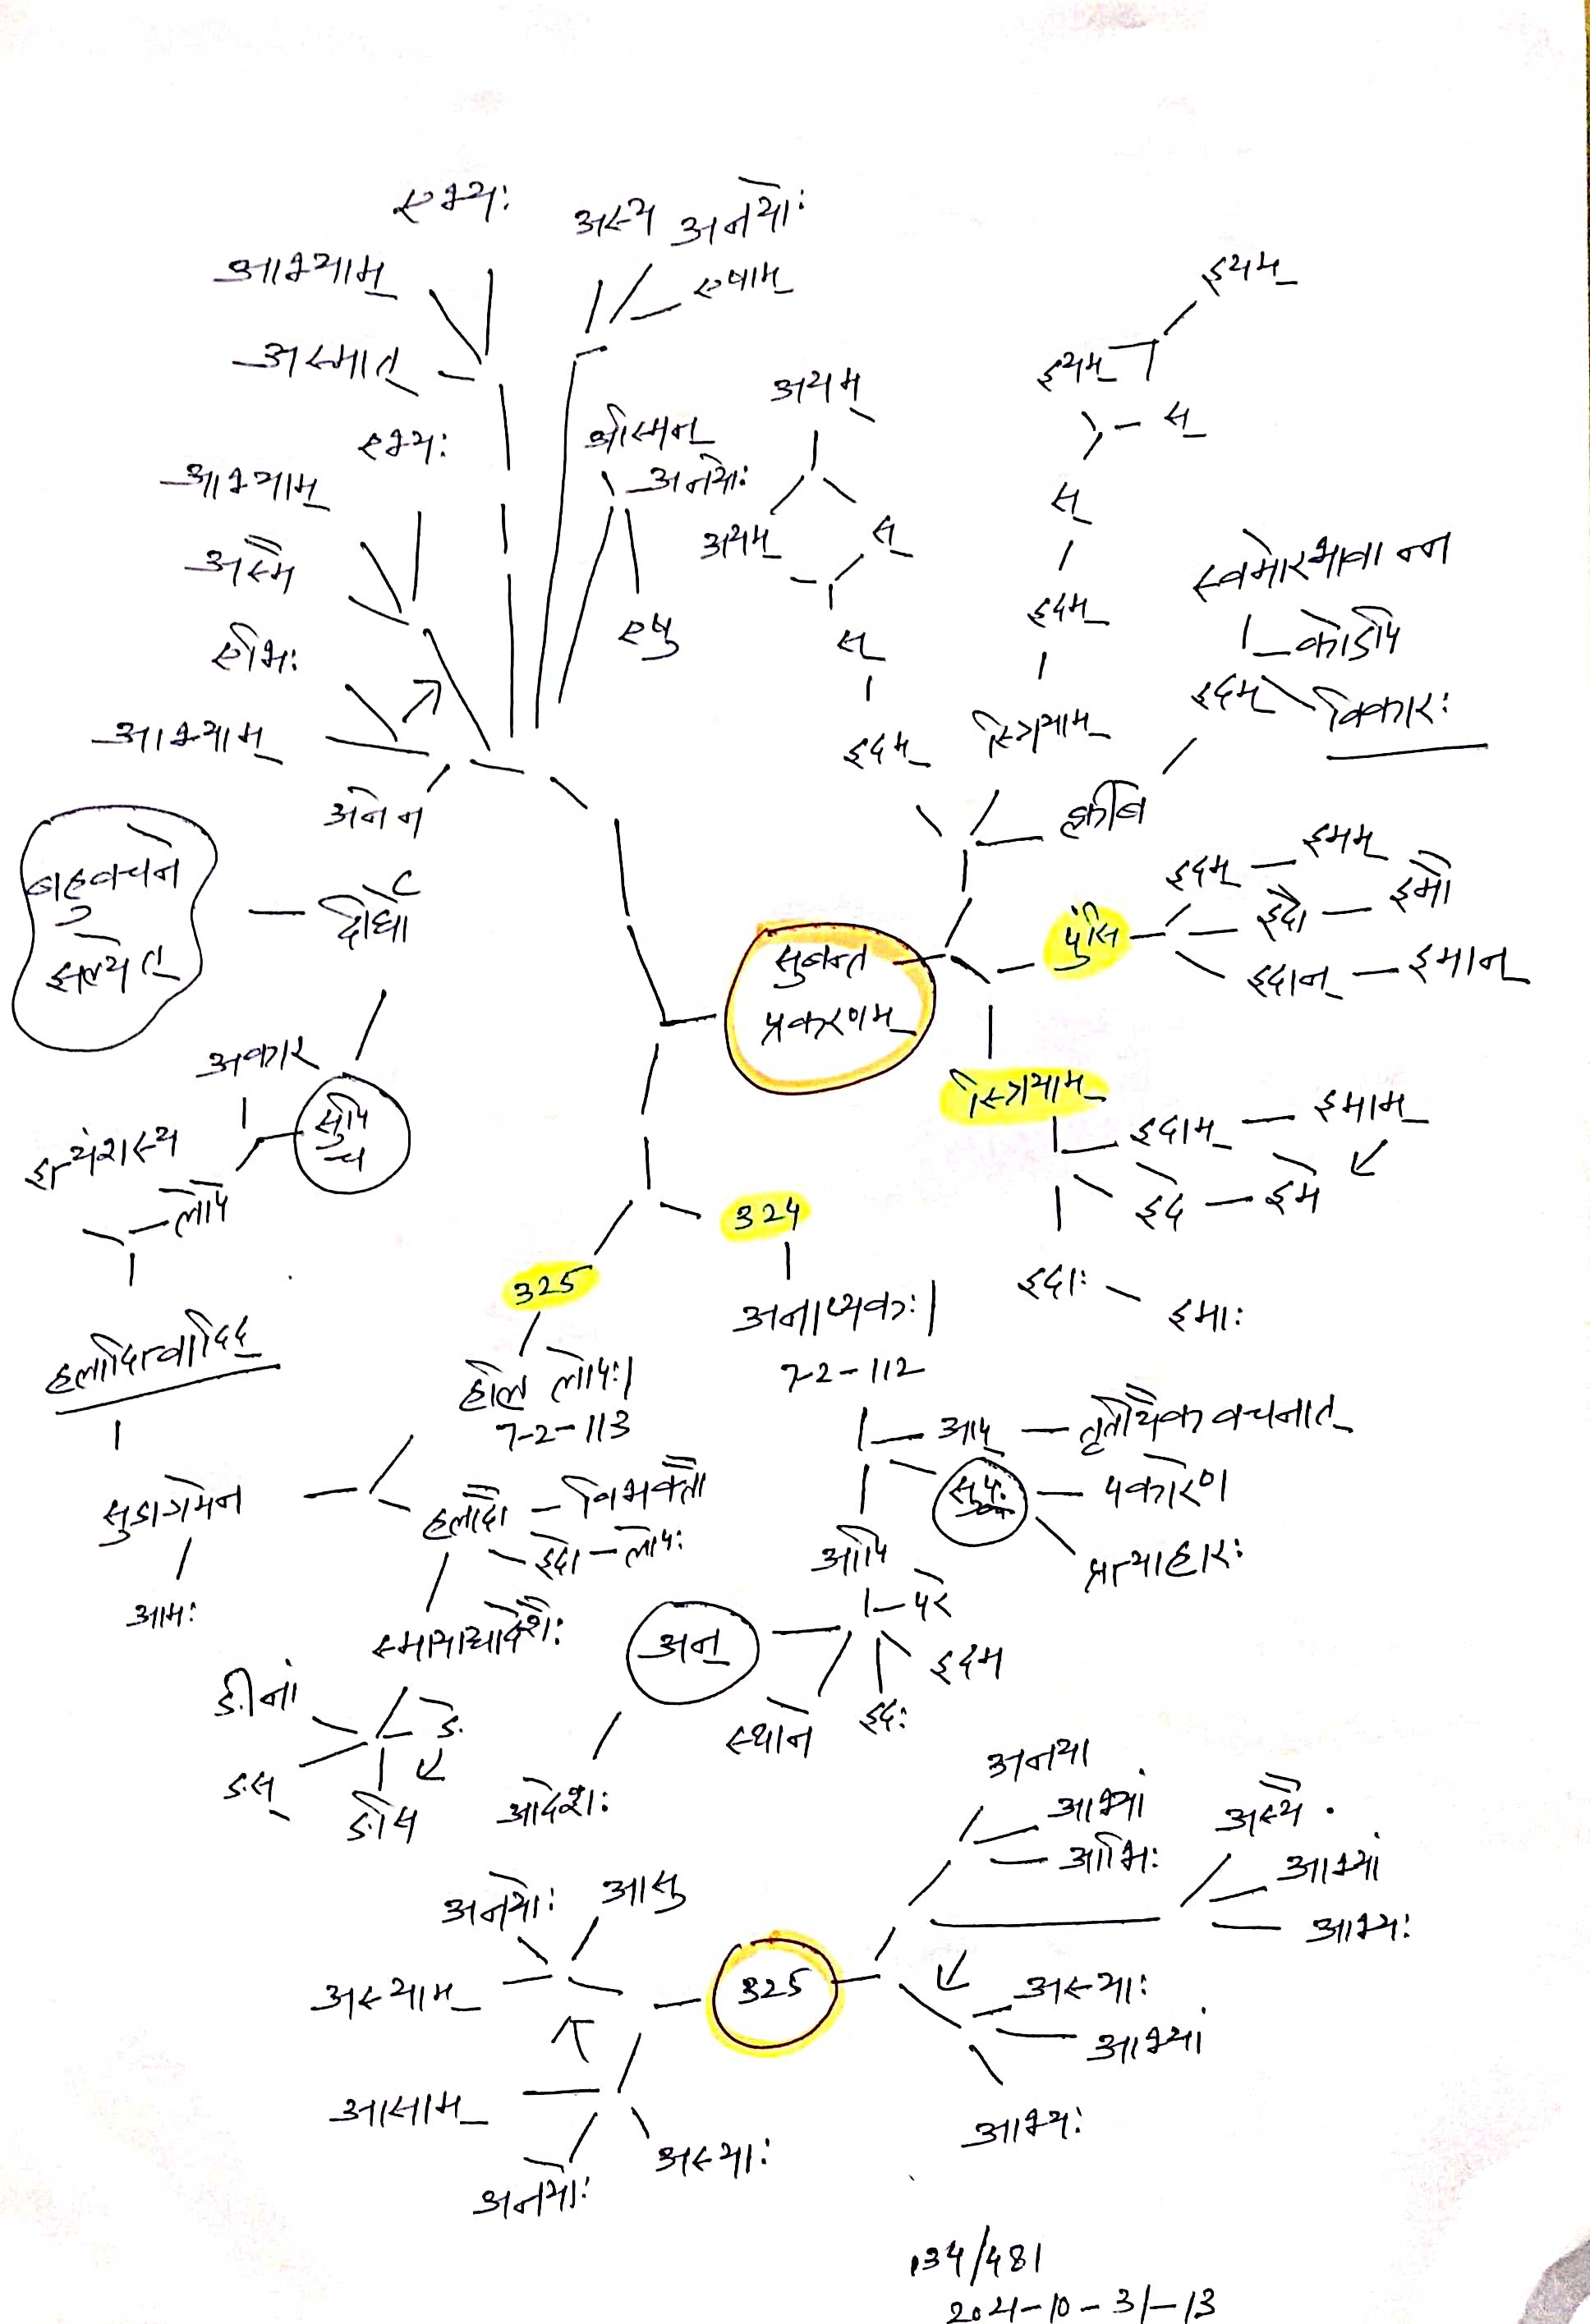 एभ्यः
अस्य
अनयोः
आभ्याम्
एषाम्
इयम्
अस्मात्
अयम्
इयम्
स्
एभ्यः
अस्मिन्
अनयोः
आभ्याम्
स्
अयम्
स्
अस्मै
स्वमोरभावान्न
इदम्
एषु
स्
कोऽपि
एभिः
इदम्
विकारः
आभ्याम्
इदम्
स्त्रियाम्
अनेन
क्लीबे
इमम्
बहुवचने
इदम्
इमौ
दीर्घो
इदौ
पुंसि
झल्येत्
सुबन्त
इदान्
इमान्
प्रकरणम्
अकार
स्त्रियाम्
सुपि
च
इदाम्
इमाम्
इत्यंशस्य
लोपे
इदे
इमे
324
325
इदाः
इमाः
अनाप्यकः।
हलादित्वादिद्
हलि लोपः।
7-2-112
7-2-113
आप्
तृतीयैकवचनात्
हलादौ
विभक्तौ
सुपः
पकारेण
सुडागमेन
इदो
लोपः
आपि
प्रत्याहारः
आमः
परे
स्मायाद्यादेशैः
अन्
इदम
ङीनां
इदः
ङे
स्थाने
ङस्
ङसि
आदेशः
अनया
आभ्यां
अस्यै
आभिः
आभ्यां
अनयोः
आसु
आभ्यः
अस्याम्
325
अस्याः
आभ्यां
आसाम्
अस्याः
आभ्यः
अनयोः
134/481
2021-10-31-13